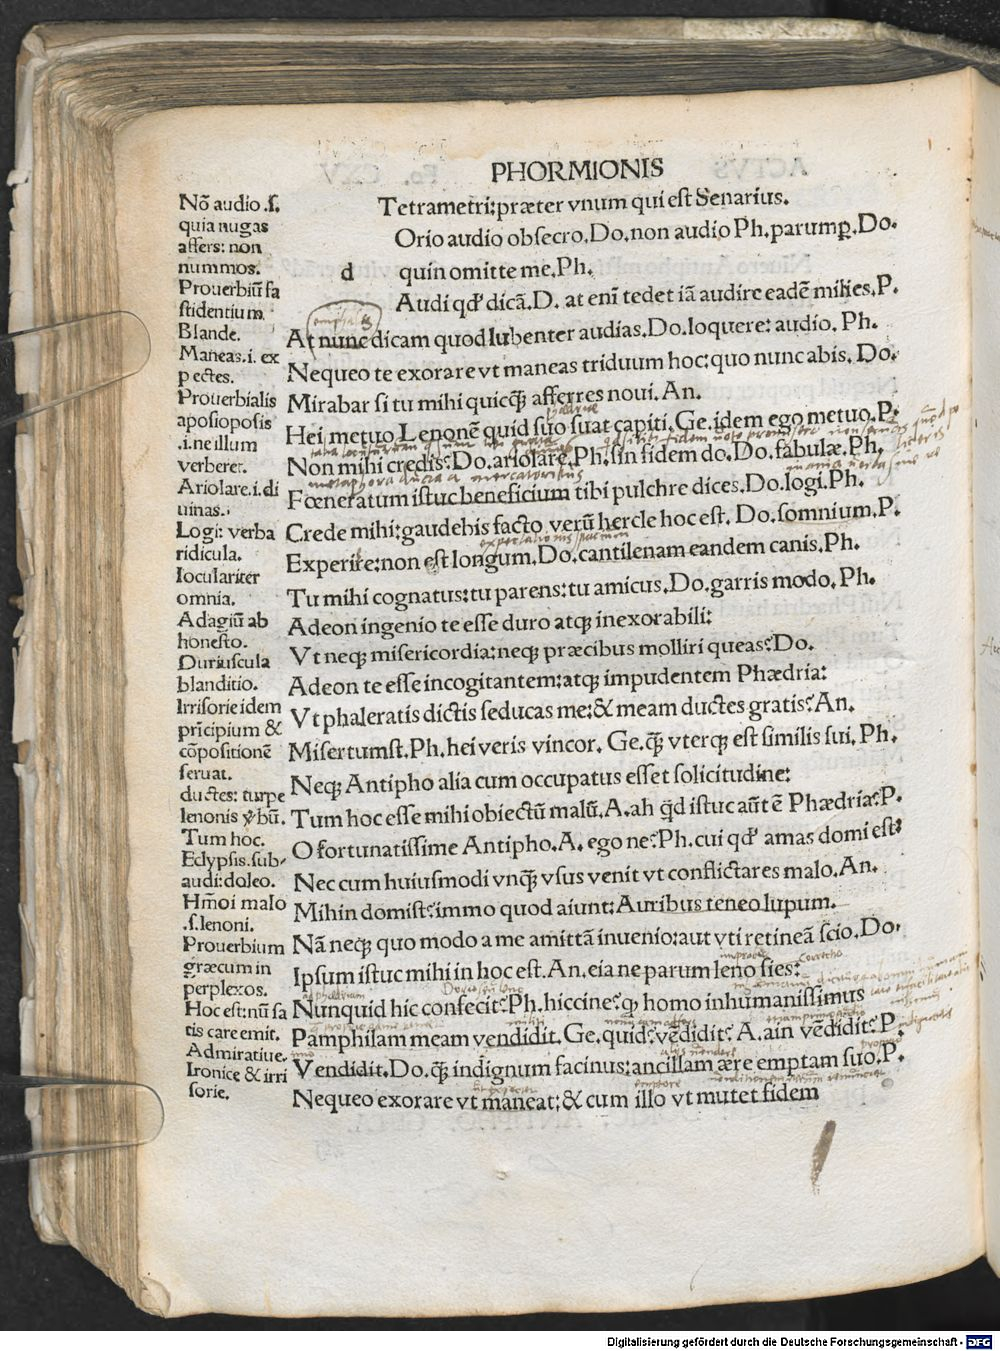 PHORMIONIS
Nō audio .ſ.
quia nugas
affers: non
nummos.
Prouerbiū fa
ſtidentium
Blande.
Maneas.i. ex
pectes.
Prouerbialis
apoſiopoſis
.i.ne illum
verberet.
Ariolare.i.di
uinas.
Logi: verba
ridicula.
Ioculariter
omnia.
Adagiū ab
honeſto.
Duriuſcula
blanditio.
Irriſorie idem
prīcipium &
cōpoſitionē
ſeruat.
ductes: turpe
lenonis ṽbū.
Tum hoc.
Eclypſis.ſub-
audi:doleo.
Hmōi malo
.ſ.lenoni.
Prouerbium
græcum in
perplexos.
Hoc eſt:nū ſa
tis care emit.
Admiratiue.
Ironice & irri
ſorie.
Tetrametri:præter vnum qui eſt Senarius.
Orio audio obſecro.Do.non audio Ph.parumꝑ.Do.
d quin omitte me.Ph.
Audi qđ dicā.D. at enī tedet iā audire eadē milies.P.
At nunc dicam quod lubenter audias.Do.loquere: audio. Ph.
Nequeo te exorare vt maneas triduum hoc:quo nunc abis. Do.
Mirabar ſi tu mihi quicꝗ̄ afferres noui. An.
Hei metuo Lenonē quid ſuo ſuat capiti. Ge.idem ego metuo.P.
Non mihi credis?Do.ariolare.Ph.ſin fidem do.Do.fabulæ.Ph.
Fœneratum iſtuc beneficium tibi pulchre dices.Do.logi.Ph.
Crede mihi:gaudebis facto verū hercle hoc eſt. Do.ſomnium.P.
Experire:non eſt longum.Do.cantilenam eandem canis.Ph.
Tu mihi cognatus:tu parens:tu amicus.Do.garris modo. Ph.
Adeon ingenio te eſſe duro atqꝫ inexorabili:
Vt neqꝫ miſericordia:neqꝫ præcibus molliri queas?Do.
Adeon te eſſe incogitantem:atqꝫ impudentem Phædria:
Vt phaleratis dictis ſeducas me:& meam ductes gratis?An.
Miſertumſt.Ph.hei veris vincor. Ge.ꝗ̄ vterqꝫ eſt ſimilis ſui. Ph.
Neqꝫ Antipho alia cum occupatus eſſet ſolicitudine:
Tum hoc eſſe mihi obiectū malū.A.ah qđ iſtuc aūt ē Phædria?P.
O fortunatiſſime Antipho.A. ego ne?Ph.cui qđ amas domi eſt?
Nec cum huiuſmodi vnꝗ̄ vſus venit vt conflictares malo.An.
Mihin domiſt?immo quod aiunt:Auribus teneo lupum.
Nā neqꝫ quo modo a me amittā inuenio:aut vti retineā ſcio.Do.
Ipſum iſtuc mihi in hoc eſt.An.eia ne parum leno ſies:
Nunquid hic confecit?Ph.hiccine?qꝫ homo inhumaniſſimus
Pamphilam meam vendidit.Ge.quid?vēdidit? A.ain vēdidit?P.
Vendidit.Do.ꝗ̄ indignum facinus:ancillam ære emptam ſuo.P.
Nequeo exorare vt maneat:& cum illo vt mutet fidem
Digitalisierung gefördert durch die Deutsche Forschungsgemeinschaft - DFG